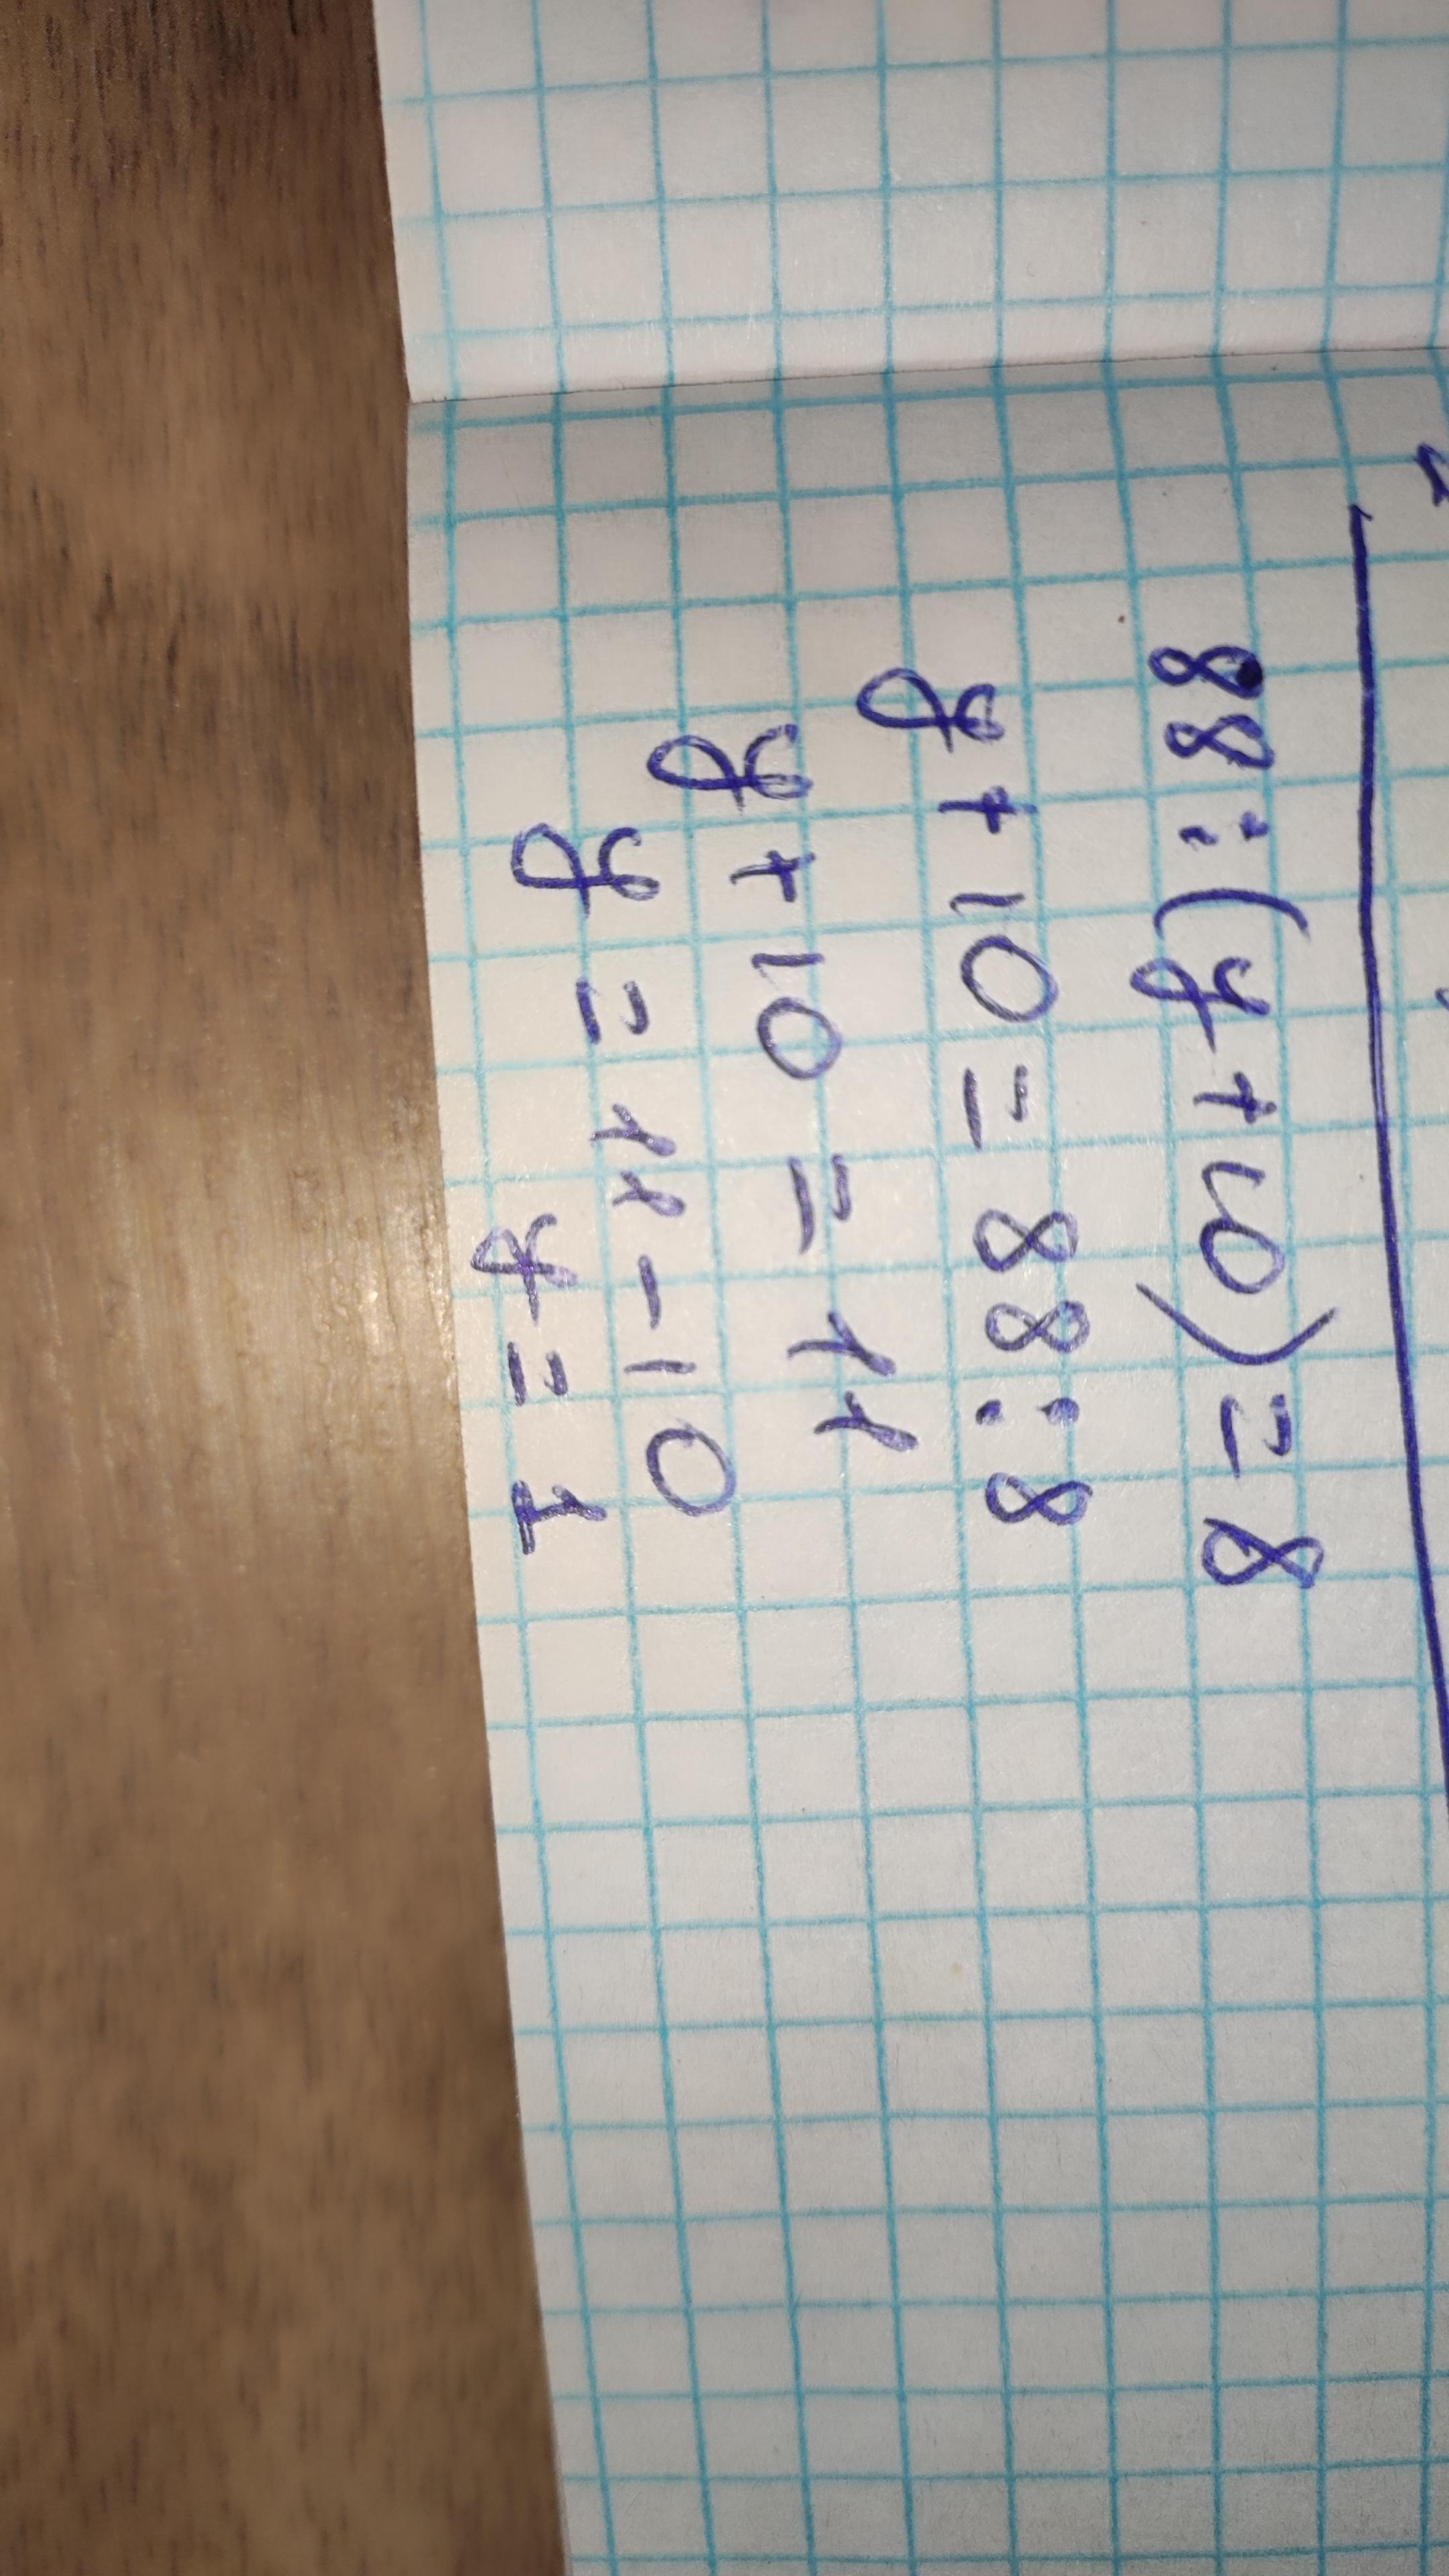 88 : (y + 10) = 8
y + 10 = 88 : 8
y + 10 = 11
y = 11 - 10
y = 1